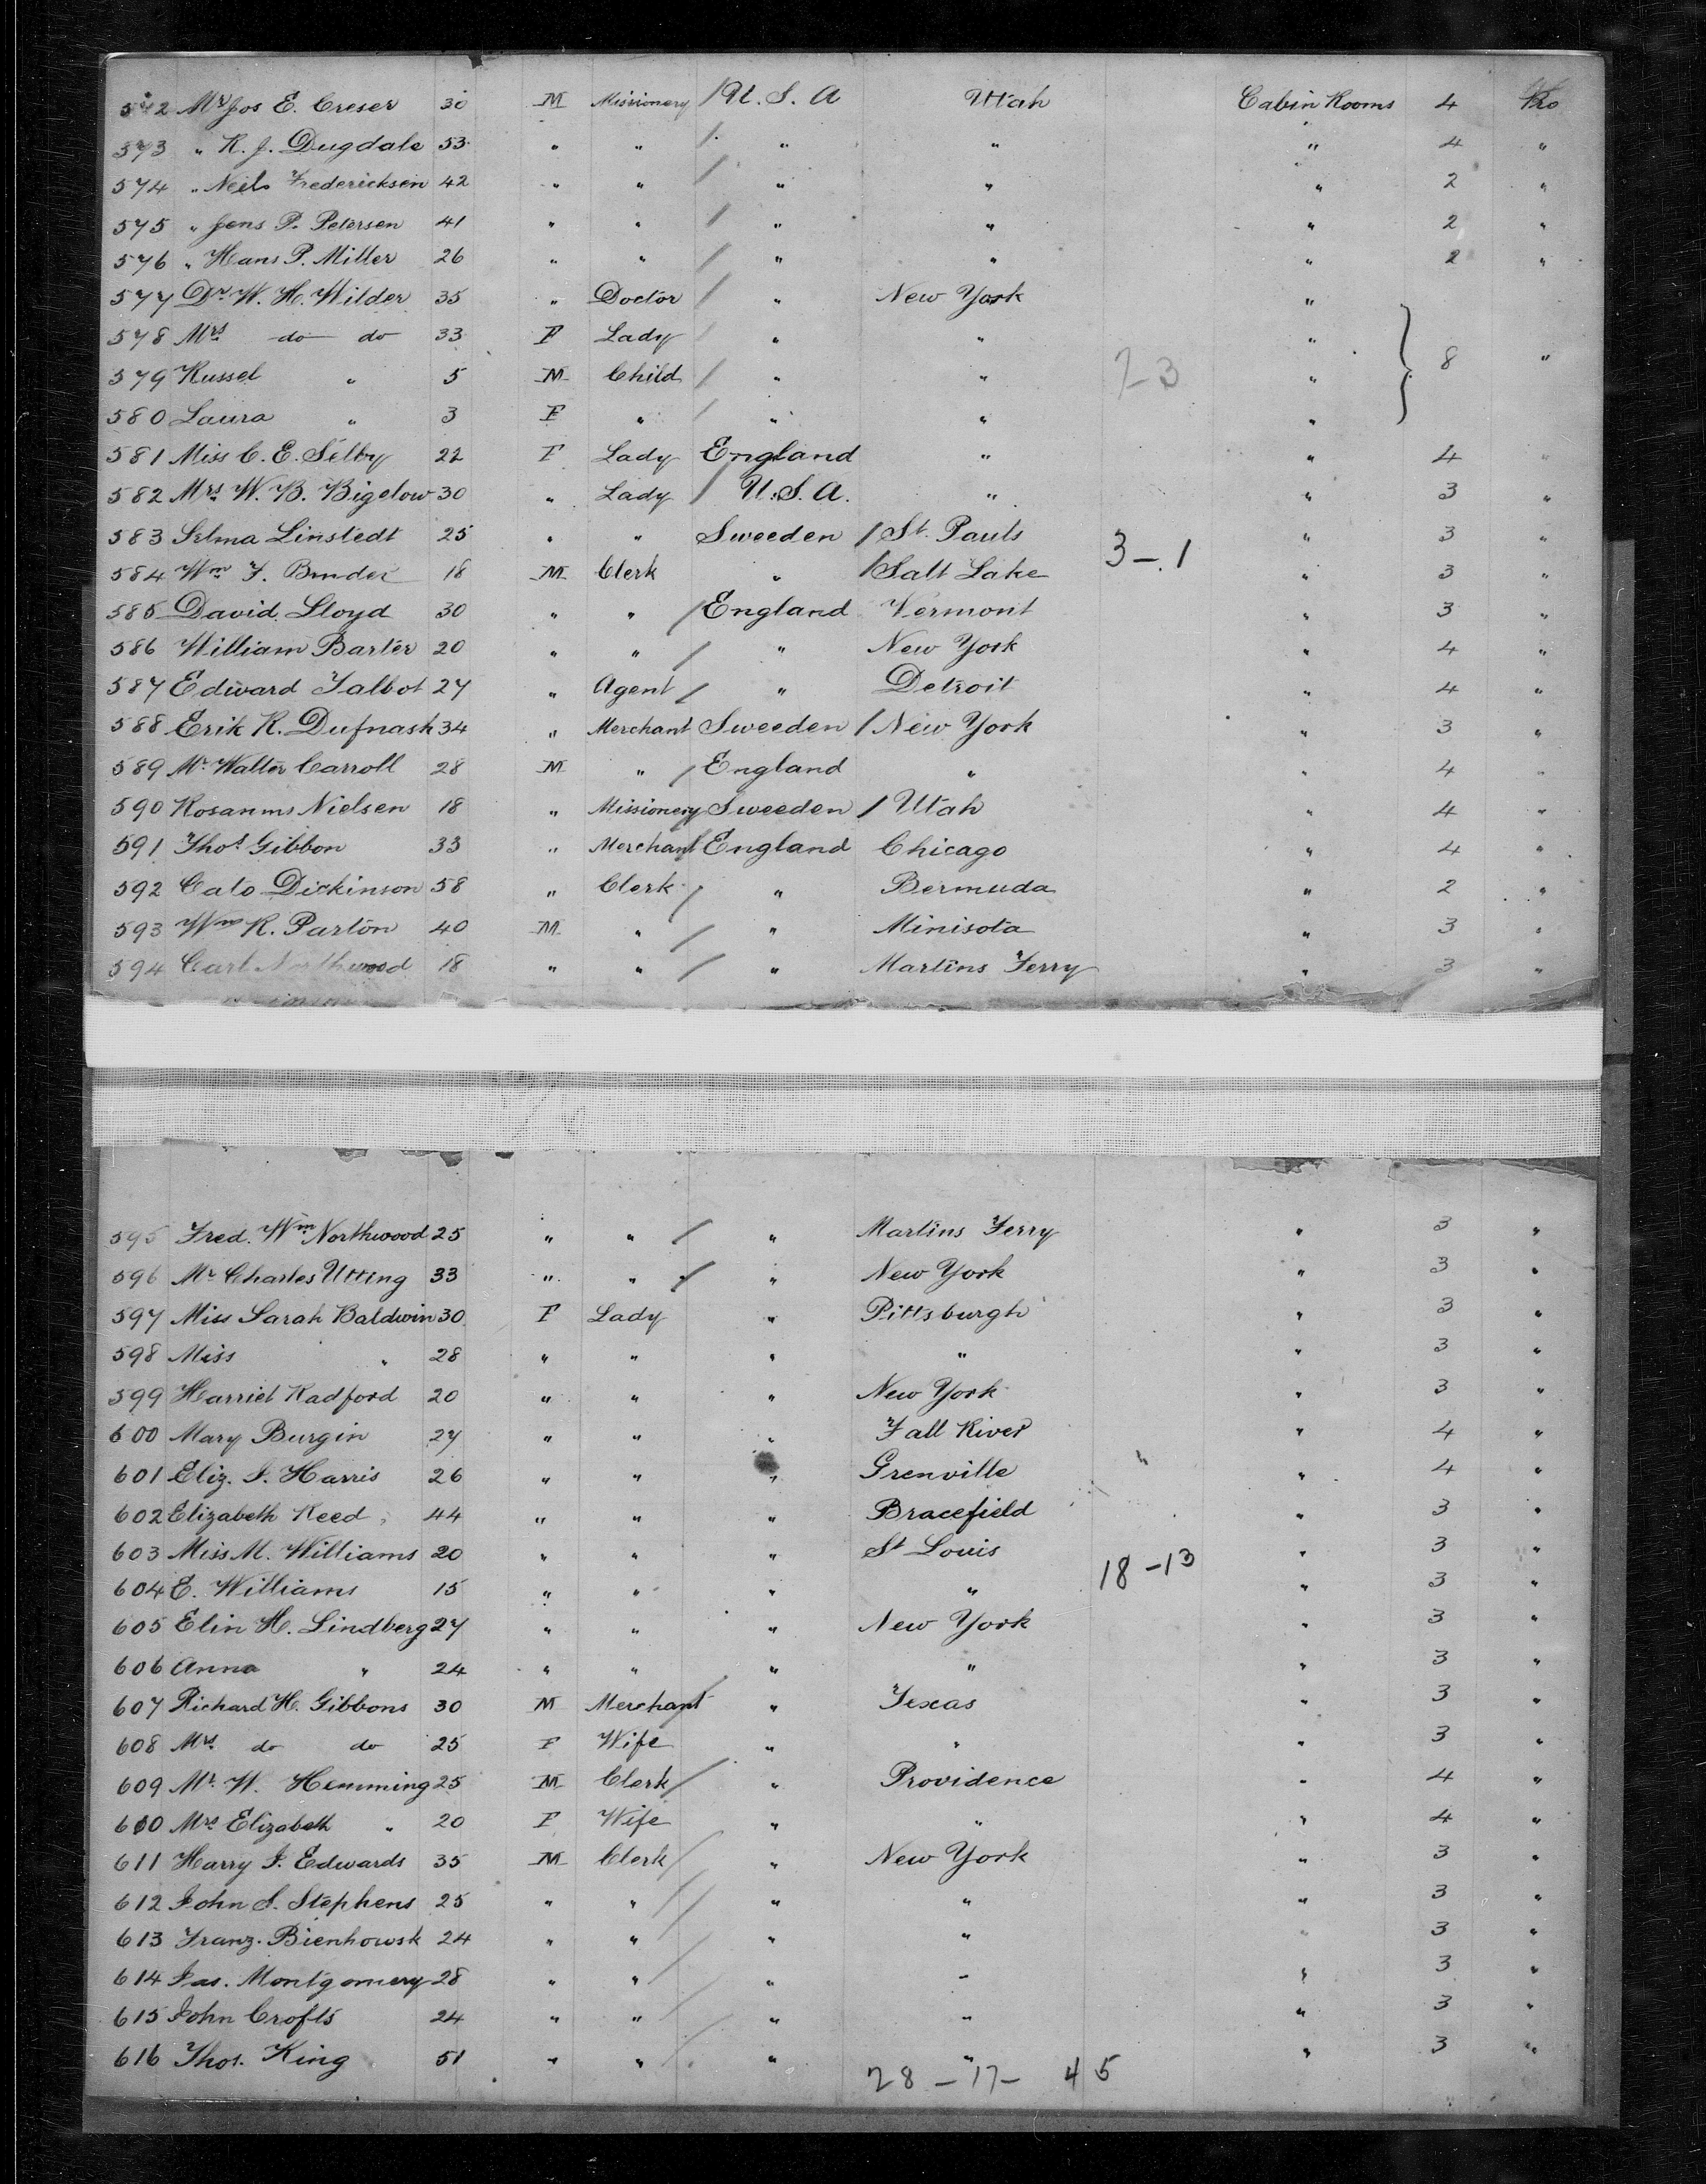 572 Mr Jos E. Creser 30 M Missionery / U. S. A Utah Cabin Rooms 4 No
573 " R. J. Dugdale 53 " " / " " " 4 "
574 " Neils Fredericksen 42 " " / " " " 2 "
575 " Jens P. Petersen 41 " " / " " " 2 "
576 " Hans P. Miller 26 " " / " " " 2 "
577 Dr W. H. Wilder 35 " Doctor / " New York "
578 Mrs do do 33 F Lady / " " "
579 Russel " 5 M Child / " " 23 " } 8 "
580 Laura " 3 F " / " " "
581 Miss C. E. Selby 22 F Lady England " " 4 "
582 Mrs W. B. Bigelow 30 " Lady / U. S. A. " " 3 "
583 Selma Linstedt 25 " " Sweeden / St. Pauls " 3 "
584 Wm F. Binder 18 M Clerk " / Salt Lake 3-1 " 3 "
585 David Lloyd 30 " " / England Vermont " 3 "
586 William Barter 20 " " / " New York " 4 "
587 Edward Talbot 27 " Agent / " Detroit " 4 "
588 Erik R. Dufnash 34 " Merchant Sweeden / New York " 3 "
589 Mr Walter Carroll 28 M " / England " " 4 "
590 Rosanms Nielsen 18 " Missionery Sweeden / Utah " 4 "
591 Thos Gibbon 33 " Merchant / England Chicago " 4 "
592 Cato Dickinson 58 " Clerk / " Bermuda " 2 "
593 Wm R. Parton 40 M " / " Minisota " 3 "
594 Carl Northwood 18 " " / " Martins Ferry " 3 "
595 Fred. Wm Northwood 25 " " / " Martins Ferry " 3 "
596 Mr Charles Utting 33 " " / " New York " 3 "
597 Miss Sarah Baldwin 30 F Lady " Pittsburgh " 3 "
598 Miss " 28 " " " " " 3 "
599 Harriet Radford 20 " " " New York " 3 "
600 Mary Burgin 27 " " " Fall River " 4 "
601 Eliz. J. Harris 26 " " " Grenville " " 4 "
602 Elizabeth Reed 44 " " " Bracefield " 3 "
603 Miss M. Williams 20 " " " St Louis " 3 "
604 E. Williams 15 " " " " 18-13 " 3 "
605 Elin H. Lindberg 27 " " " New York " 3 "
606 Anna " 24 " " " " " 3 "
607 Richard H. Gibbons 30 M Merchant / " Texas " 3 "
608 Mrs do do 25 F Wife " " " 3 "
609 Mr. W. Hemming 25 M Clerk / " Providence " 4 "
610 Mrs Elizabeth " 20 F Wife " " " 4 "
611 Harry J. Edwards 35 M Clerk / " New York " 3 "
612 John S. Stephens 25 " " / " " " 3 "
613 Franz. Bienhowsk 24 " " / " " " 3 "
614 Jas. Montgomery 28 " " / " " " 3 "
615 John Crofts 24 " " / " " " 3 "
616 Thos. King 51 " " / " " " 3 "
28-17- 45